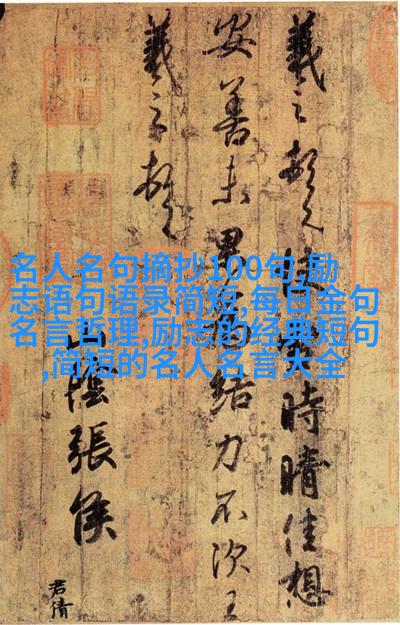 羲之頓首快雪時晴佳想
安善未果為結力不次王
羲之頓首
山陰張侯
君倩
名人名句摘抄100句,励
志语句语录简短,每日金句
名言哲理,励志的经典短句
,简短的名人名言大全